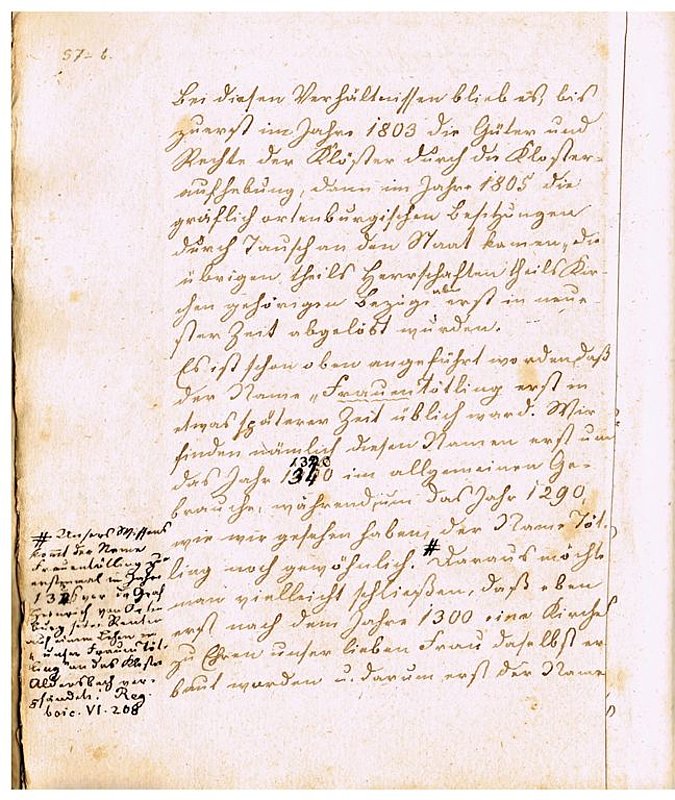 37-b.
Bei diesen Verhältnissen blieb es, bis
zuerst im Jahre 1803 die Güter und
Rechte der Klöster durch die Kloster-
aufhebung, dann im Jahre 1805 die
gräflich ortenburgischen Besitzungen
durch Tausch an den Staat kamen, die
übrigen theils Herrschaften theils Kir-
chen gehörigen Bezüge aber erst in neue-
ster Zeit abgelöst wurden.
Es ist schon oben angeführt worden, daß
der Name „Frauentötling erst in
etwas späterer Zeit üblich ward. Wir
finden nämlich diesen Namen erst um
1320
das Jahr 1340 im allgemeinen Ge-
brauche, während um das Jahr 1290,
wie wir gesehen haben, der Name Töt-
ling noch gewöhnlich. # Daraus möchte
man vielleicht schließen, daß eben
erst nach dem Jahre 1300 eine Kirche
zu Ehren unser lieben Frau daselbst er
baut worden u. darum erst der Name
# Unsers Wissens
kommt der Name
Frauentötling zu
erstenmal im Jahre
1326 vor da Graf
Heinrich von Orten
burg seine Renten
auf einem Lehen in
„unser Frauen Töt-
ling" an das Kloster
Aldersbach ver-
pfändete. Reg.
boic. VI. 208